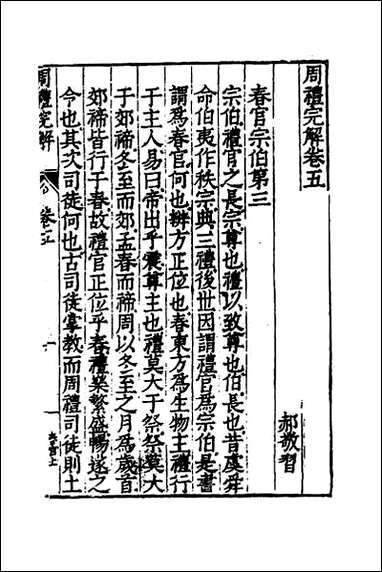 周禮完解卷五
郝敬習
春官宗伯第三
宗伯禮官之長宗尊也禮以致尊也伯長也昔虞舜
命伯夷作秩宗典三禮後世因謂禮官為宗伯是書
謂為春官何也辨方正位也春東方為生物主禮行
于主人易曰帝出乎震尊主也禮莫大于祭祭莫大
于郊禘冬至而郊孟春而禘周以冬至之月為歲首
郊禘皆行于春故禮官正位乎春禮樂繁盛暢遂之
令也其次司徒何也古司徒掌教而周禮司徒則土
周禮完解
卷五